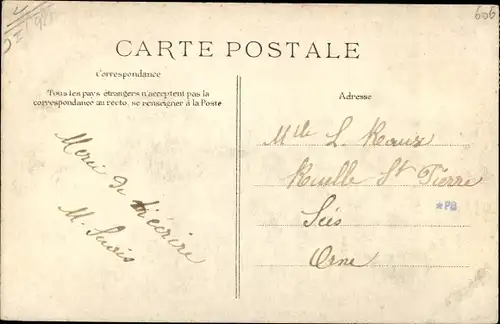 606
CARTE POSTALE
Correspondance
Tous les pays étrangers n'acceptent pas la
correspondance au recto, se renseigner à la Poste
Adresse
Merci de m'écrire
M.
Mlle L.
Ruelle St Pierre
Sées
Orne
*PB